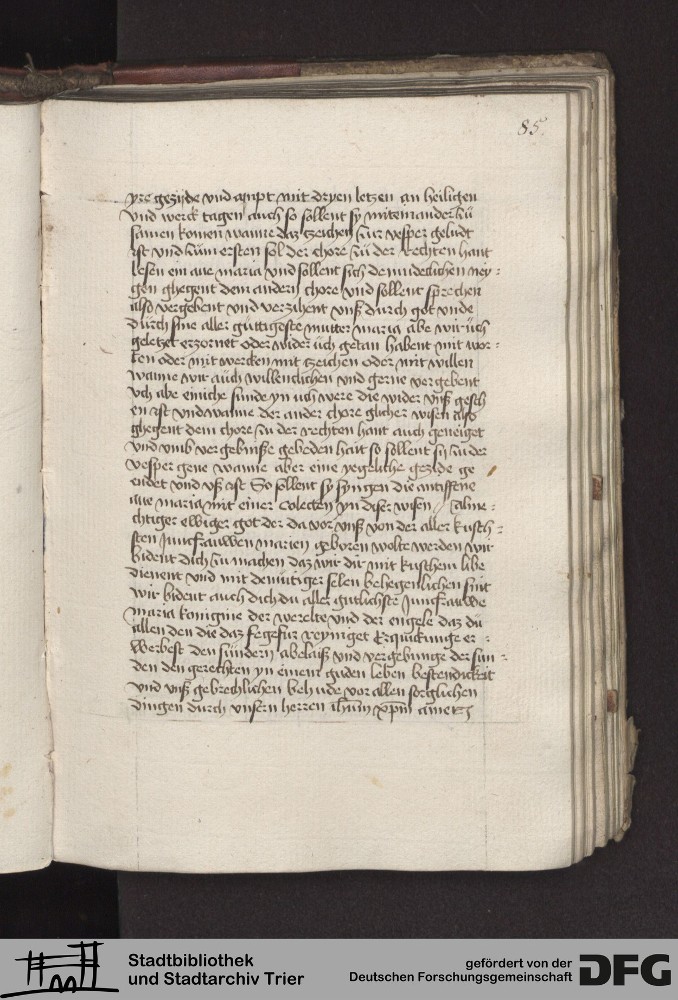 85.
yre gezijde vnd ampt mit dryen letzen an heiligen
vnd werck tagen auch so sollent sy miteinander zü
samen komen wanne daz zeichen zur vesper geludt
ist vnd züm ersten sol der chore zü der rechten hant
lesen ein aue maria vnd sollent sich demudeclichen ney-
gen ghegent dem andern chore vnd sollent sprechen
also vergebent vnd verzihent vnß durch got vnde
durch sine aller güttigoste mutter maria abe wir üch
geletzet erzornet oder wider üch getan habent mit wor-
ten oder mit wercken mit zeichen oder mit willen
wanne wir aüch willenclichen vnd gerne vergebent
vch abe einiche sunde yn uch were die wider vnß gesch
en ist vnd wanne der ander chore glicher wisen also
ghegent dem chore zu der rechten hant auch geneiget
vnd vmb vergebniße gebeden hait so sollent sy zu der
vesper gene wanne aber eine yegeliche gezide ge
endet vnd vß ist So sollent sy syngen die antiffene
aue maria mit einer colecten yn dißer wisen / Almec-
chtiger ewiger got der da vor vnß von der aller kusch-
sten Junfrauwen marien geboren wolte werden wir
bident dich zu machen daz wir dir mit kuschem libe
dienent vnd mit demütiger selen behegenlichen sint
wir bident auch dich du aller gutlichste Junfrauwe
maria konigine der werelte vnd der engele daz du
allen den die daz fegefur reyniget Erquickunge er-
werbest den sündern abelaiß vnd vergebunge der sun-
den den gerechten yn einem guden leben bestendickeit
vnd vnß gebrechlichen behude vor allen sorglichen
dingen durch vnsern herren ihum xpm amen
Stadtbibliothek
und Stadtarchiv Trier
gefördert von der
Deutschen Forschungsgemeinschaft
DFG